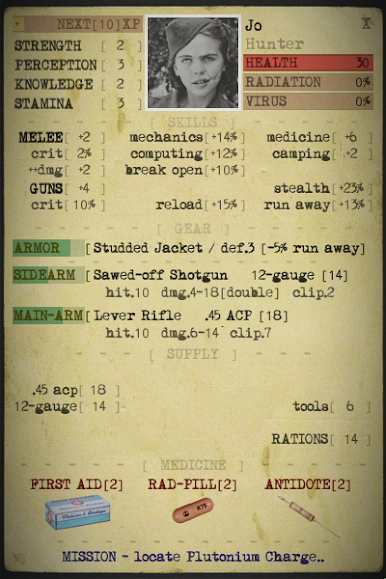 + NEXT[10]XP Jo X
Hunter
STRENGTH [ 2 ] HEALTH 30
PERCEPTION[ 3 ] RADIATION 0%
KNOWLEDGE [ 2 ] VIRUS 0%
STAMINA [ 3 ]
[ SKILLS ]
MELEE[ +2 ] mechanics[+14%] medicine[ +6 ]
crit[ 2% ] computing[+12%] camping[ +2 ]
++dmg[ +2 ] break open[+10%]
GUNS[ +4 ] stealth[+23%]
crit[ 10% ] reload[+15%] run away[+13%]
[ GEAR ]
ARMOR [Studded Jacket / def.3 [-5% run away]
SIDEARM [Sawed-off Shotgun 12-gauge [14]
hit.10 dmg.4-18[double] clip.2
MAIN-ARM[Lever Rifle .45 ACP [18]
hit.10 dmg.6-14 clip.7
[ SUPPLY ]
.45 acp[ 18 ]
12-gauge[ 14 ] tools[ 6 ]
RATIONS[ 14 ]
[ MEDICINE ]
FIRST AID[2] RAD-PILL[2] ANTIDOTE[2]
MISSION - locate Plutonium Charge..